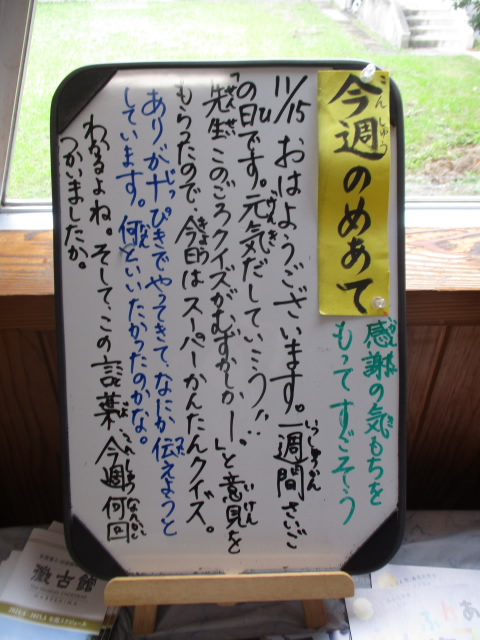 今週のめあて
感謝の気もちを
もってすごそう
11/15 おはようございます。一週間さいご
の日です。元気だしていこう!!
「先生このごろクイズがむずかしかー。」と意見を
もらったので、今日はスーパーかんたんクイズ。
ありが十ぴきでやってきて、なにか伝えようと
しています。何といいたかったのかな。
わかるよね。そして、この言葉、今週何回
つかいましたか。